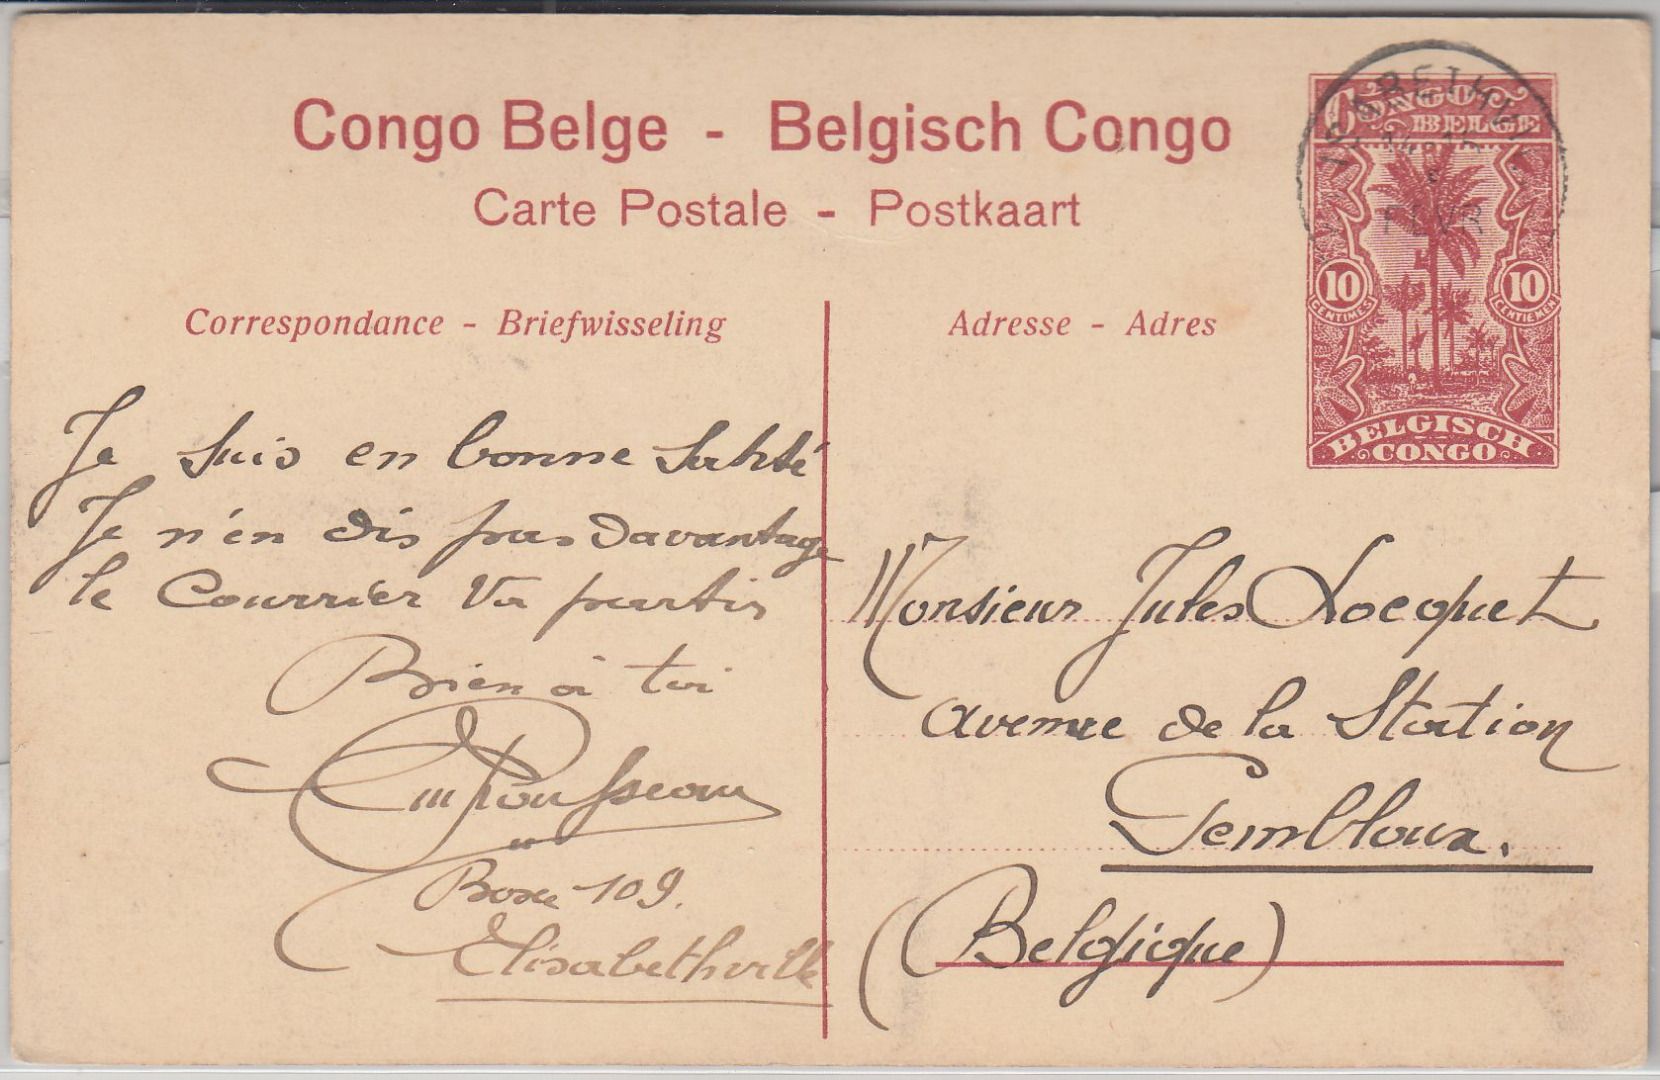 Congo Belge - Belgisch Congo
Carte Postale - Postkaart
CONGO BELGE
10 CENTIMES
10 CENTIEMEN
BELGISCH CONGO
Correspondance - Briefwisseling
Je suis en bonne Santé
Je n'en dis pas davantage
le Courrier va partir
Bien à toi
Boxe 109.
Elisabethville
Adresse - Adres
Monsieur Jules Docquet
Avenue de la Station
Gembloux.
(Belgique)